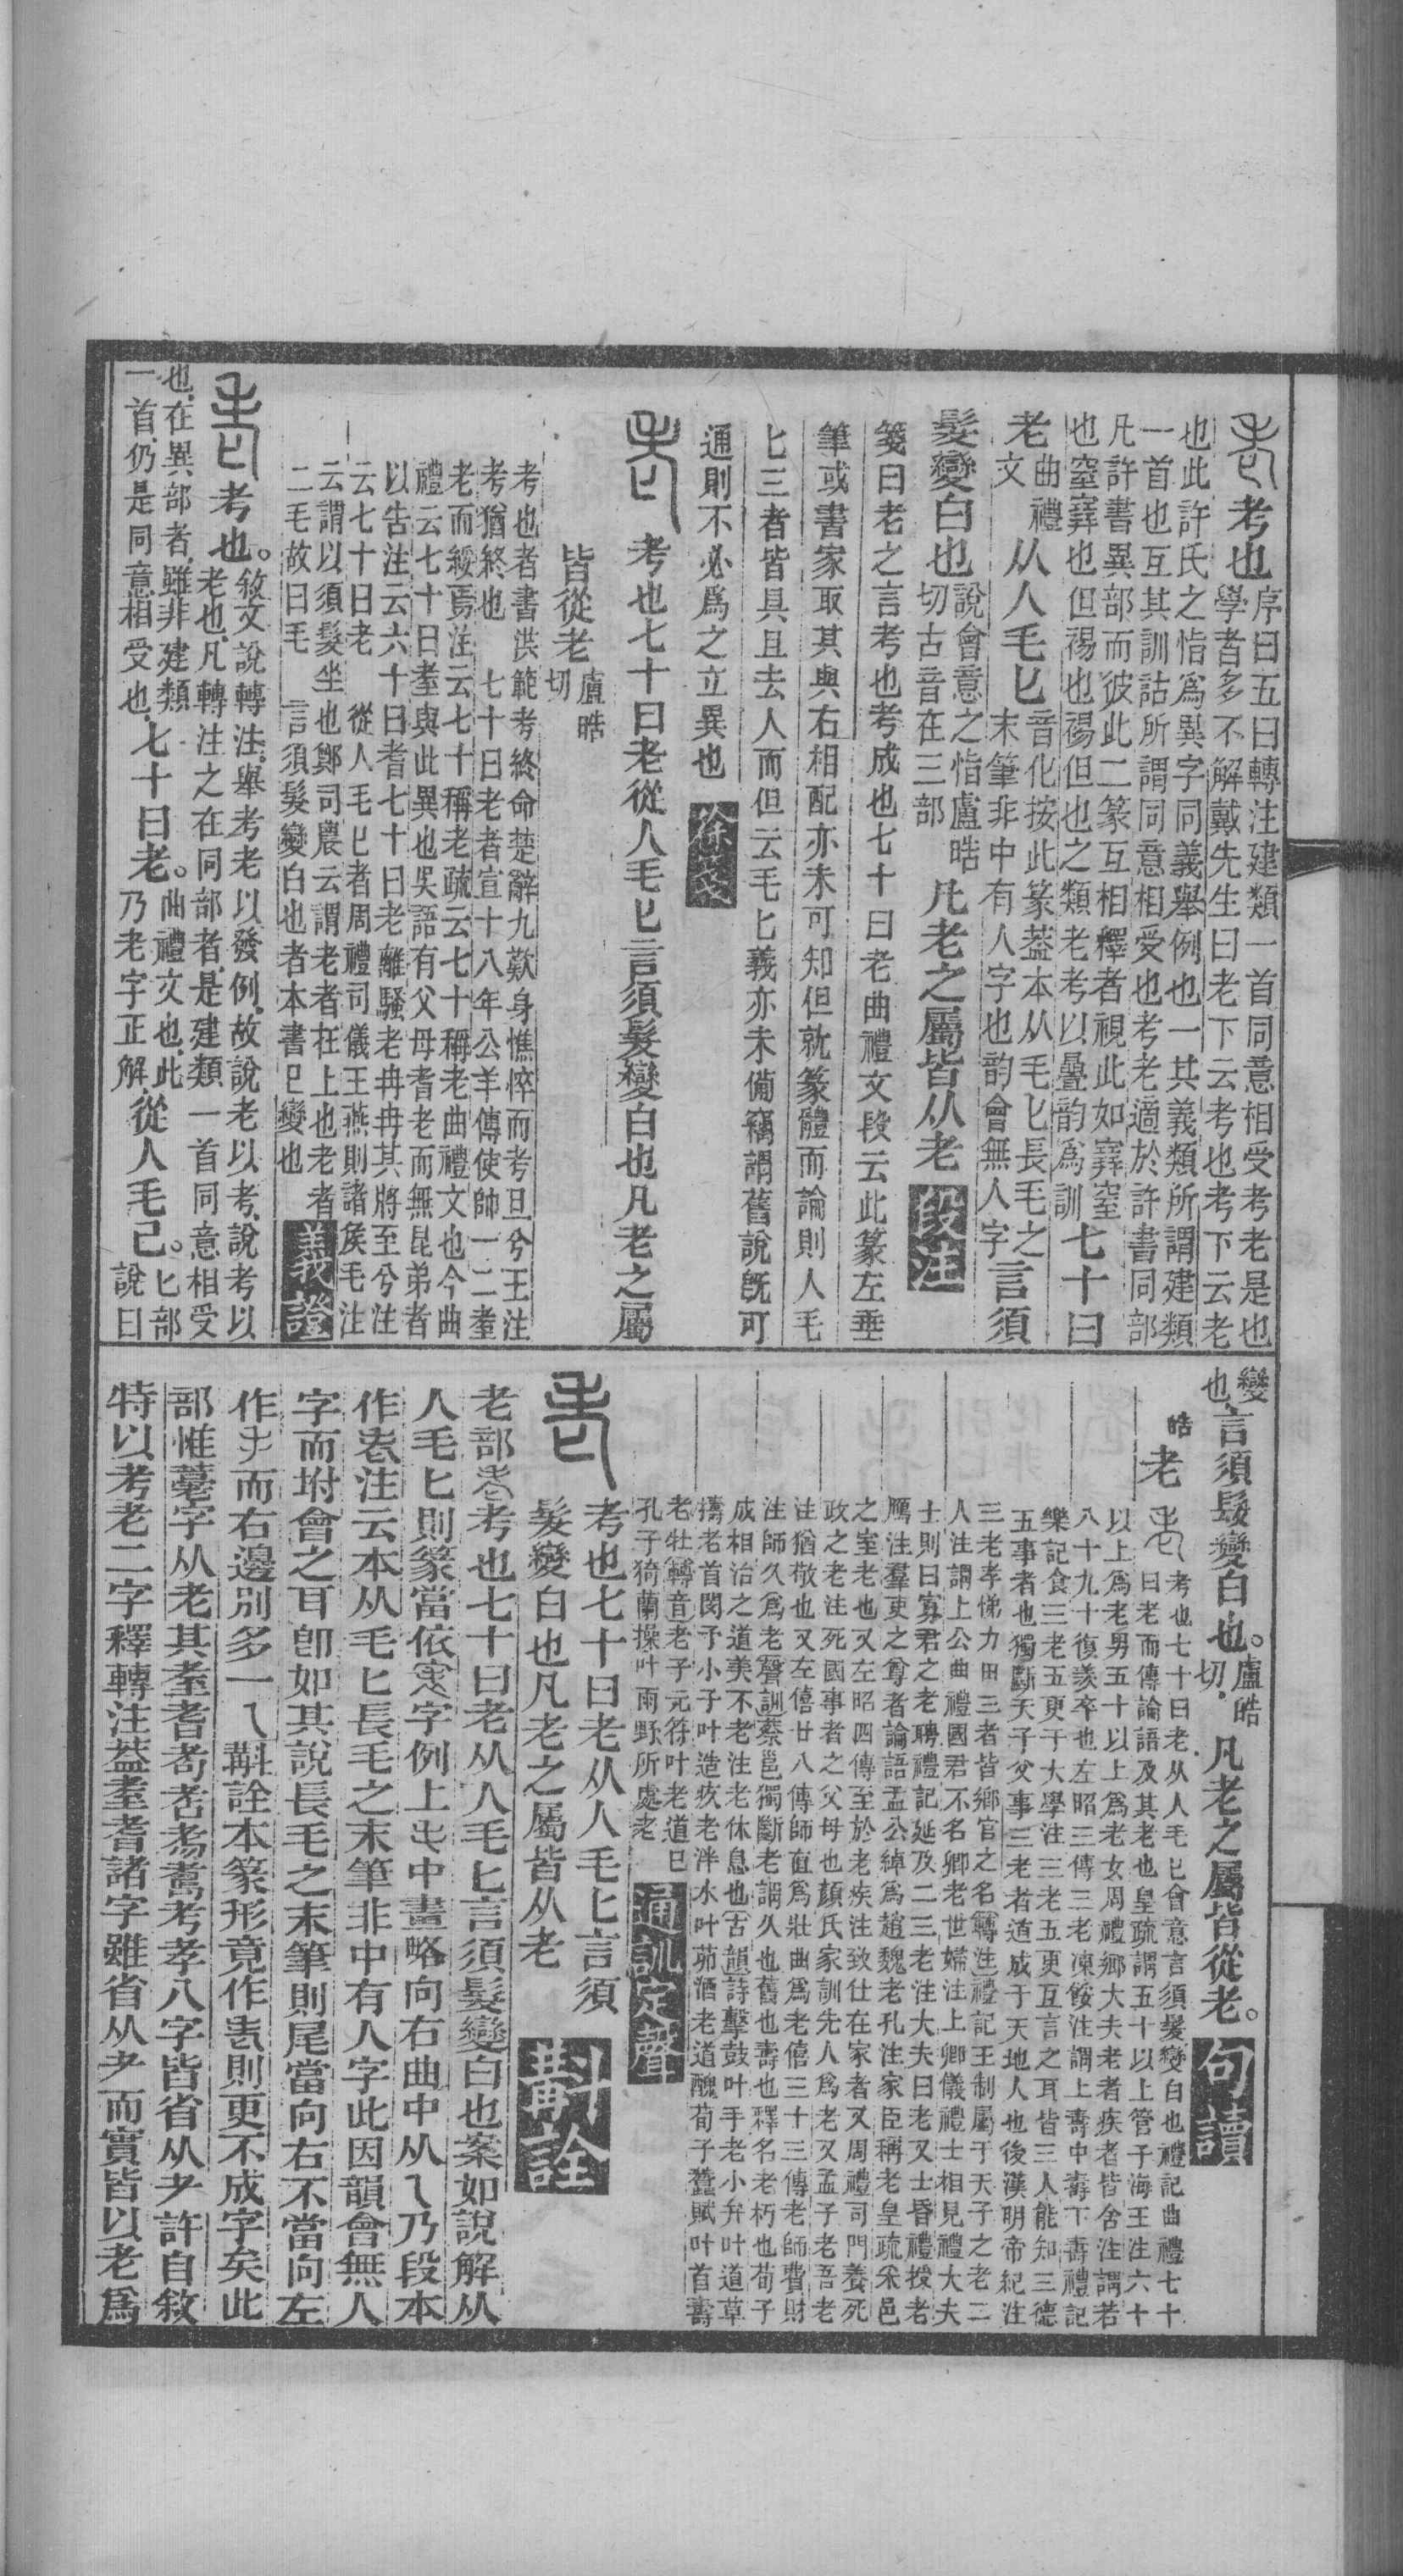 考也
序曰五曰轉注建類一首同意相受考老是也
學者多不解戴先生曰老下云考也考下云老
也此許氏之恉爲異字同義舉例也一其義類所謂建類
一首也互其訓詁所謂同意相受也考老適於許書同部
凡許書異部而彼此二篆互相釋者視此如窸窒
也窒也但裼也裼但也之類老考以㬪韵爲訓
七十曰
老
曲禮
文
从人毛匕
音化按此篆葢本从毛匕長毛之
末筆非中有人字也韵會無人字
言須
髮變白也
說會意之恉盧皓
切古音在三部
凡老之屬皆从老
段注
箋曰老之言考也考成也七十曰老曲禮文段云此篆左垂
筆或書家取其與右相配亦未可知但就篆體而論則人毛
匕三者皆具且去人而但云毛匕義亦未備竊謂舊說旣可
通則不必爲之立異也
徐箋
考也七十曰老從人毛匕言須髮變白也凡老之屬
皆從老
盧皓
切
考也者書洪範考終命楚辭九歎身憔悴而考旦兮王注
考猶終也 七十曰老者宣十八年公羊傳使帥一二耋
老而綏焉注云七十稱老疏云七十稱老曲禮文也今曲
禮云七十曰耋與此異也吳語有父母耆老而無昆弟者
以告注云六十曰耆七十曰老離騷老冉冉其將至兮注
云七十曰老 從人毛匕者周禮司儀王燕則諸矦毛注
云謂以須髮坐也鄭司農云謂老者在上也老者
二毛故曰毛 言須髮變白也者本書匕變也
義證
考也。
敘文說轉注。舉考老以發例。故說老以考。說考以
老也。凡轉注之在同部者。是建類一首同意相受
也。在異部者。雖非建類
一首。仍是同意相受也。
七十曰老。
曲禮文也。此
乃老字正解。
從人毛匕。
匕部
說曰
變
也。
言須髮變白也。
盧皓
切。
凡老之屬皆從老。
句讀
皓
老
考也七十曰老从人毛匕會意言須髮變白也禮記曲禮七十
曰老而傳論語及其老也皇疏謂五十以上管子海王注六十
以上爲老男五十以上爲老女周禮鄉大夫老者疾者皆舍注謂若
八十九十復羨卒也左昭三傳三老凍餒注謂上壽中壽下壽禮記
樂記食三老五更于大學注三老五更互言之耳皆三人能知三德
五事者也獨斷天子父事三老者道成于天地人也後漢明帝紀注
三老孝悌力田三者皆鄉官之名轉注禮記王制屬于天子之老二
人注謂上公曲禮國君不名卿老世婦注上卿儀禮士相見禮大夫
士則曰寡君之老聘禮記延及二三老注大夫曰老又士昏禮授老
鴈注羣吏之尊者論語孟公綽爲趙魏老孔注家臣稱老皇疏采邑
之室老也又左昭四傳至於老疾注致仕在家者又周禮司門養死
政之老注死國事者之父母也顏氏家訓先人爲老又孟子老吾老
注猶敬也又左僖廿八傳師直爲壯曲爲老僖三十三傳老師費財
注師久爲老聲訓蔡邕獨斷老謂久也舊也壽也釋名老朽也荀子
成相治之道美不老注老休息也古韻詩擊鼓叶手老小弁叶道草
擣老首閔予小子叶造疚老泮水叶茆酒老道醜荀子蠶賦叶首壽
老牡轉音老子元符叶老道已
孔子猗蘭操叶雨野所處老
通訓定聲
考也七十曰老从人毛匕言須
髮變白也凡老之屬皆从老
斠詮
老部考也七十曰老从人毛匕言須髮變白也案如說解从
人毛匕則篆當依字例上中畫略向右曲中从乃段本
作注云本从毛匕長毛之末筆非中有人字此因韻會無人
字而坿會之耳卽如其說長毛之末筆則尾當向右不當向左
作而右邊別多一斠詮本篆形竟作則更不成字矣此
部惟薹字从老其耋耆耇考孝八字皆省从耂許自敘
特以考老二字釋轉注葢耋耆諸字雖省从耂而實皆以老爲